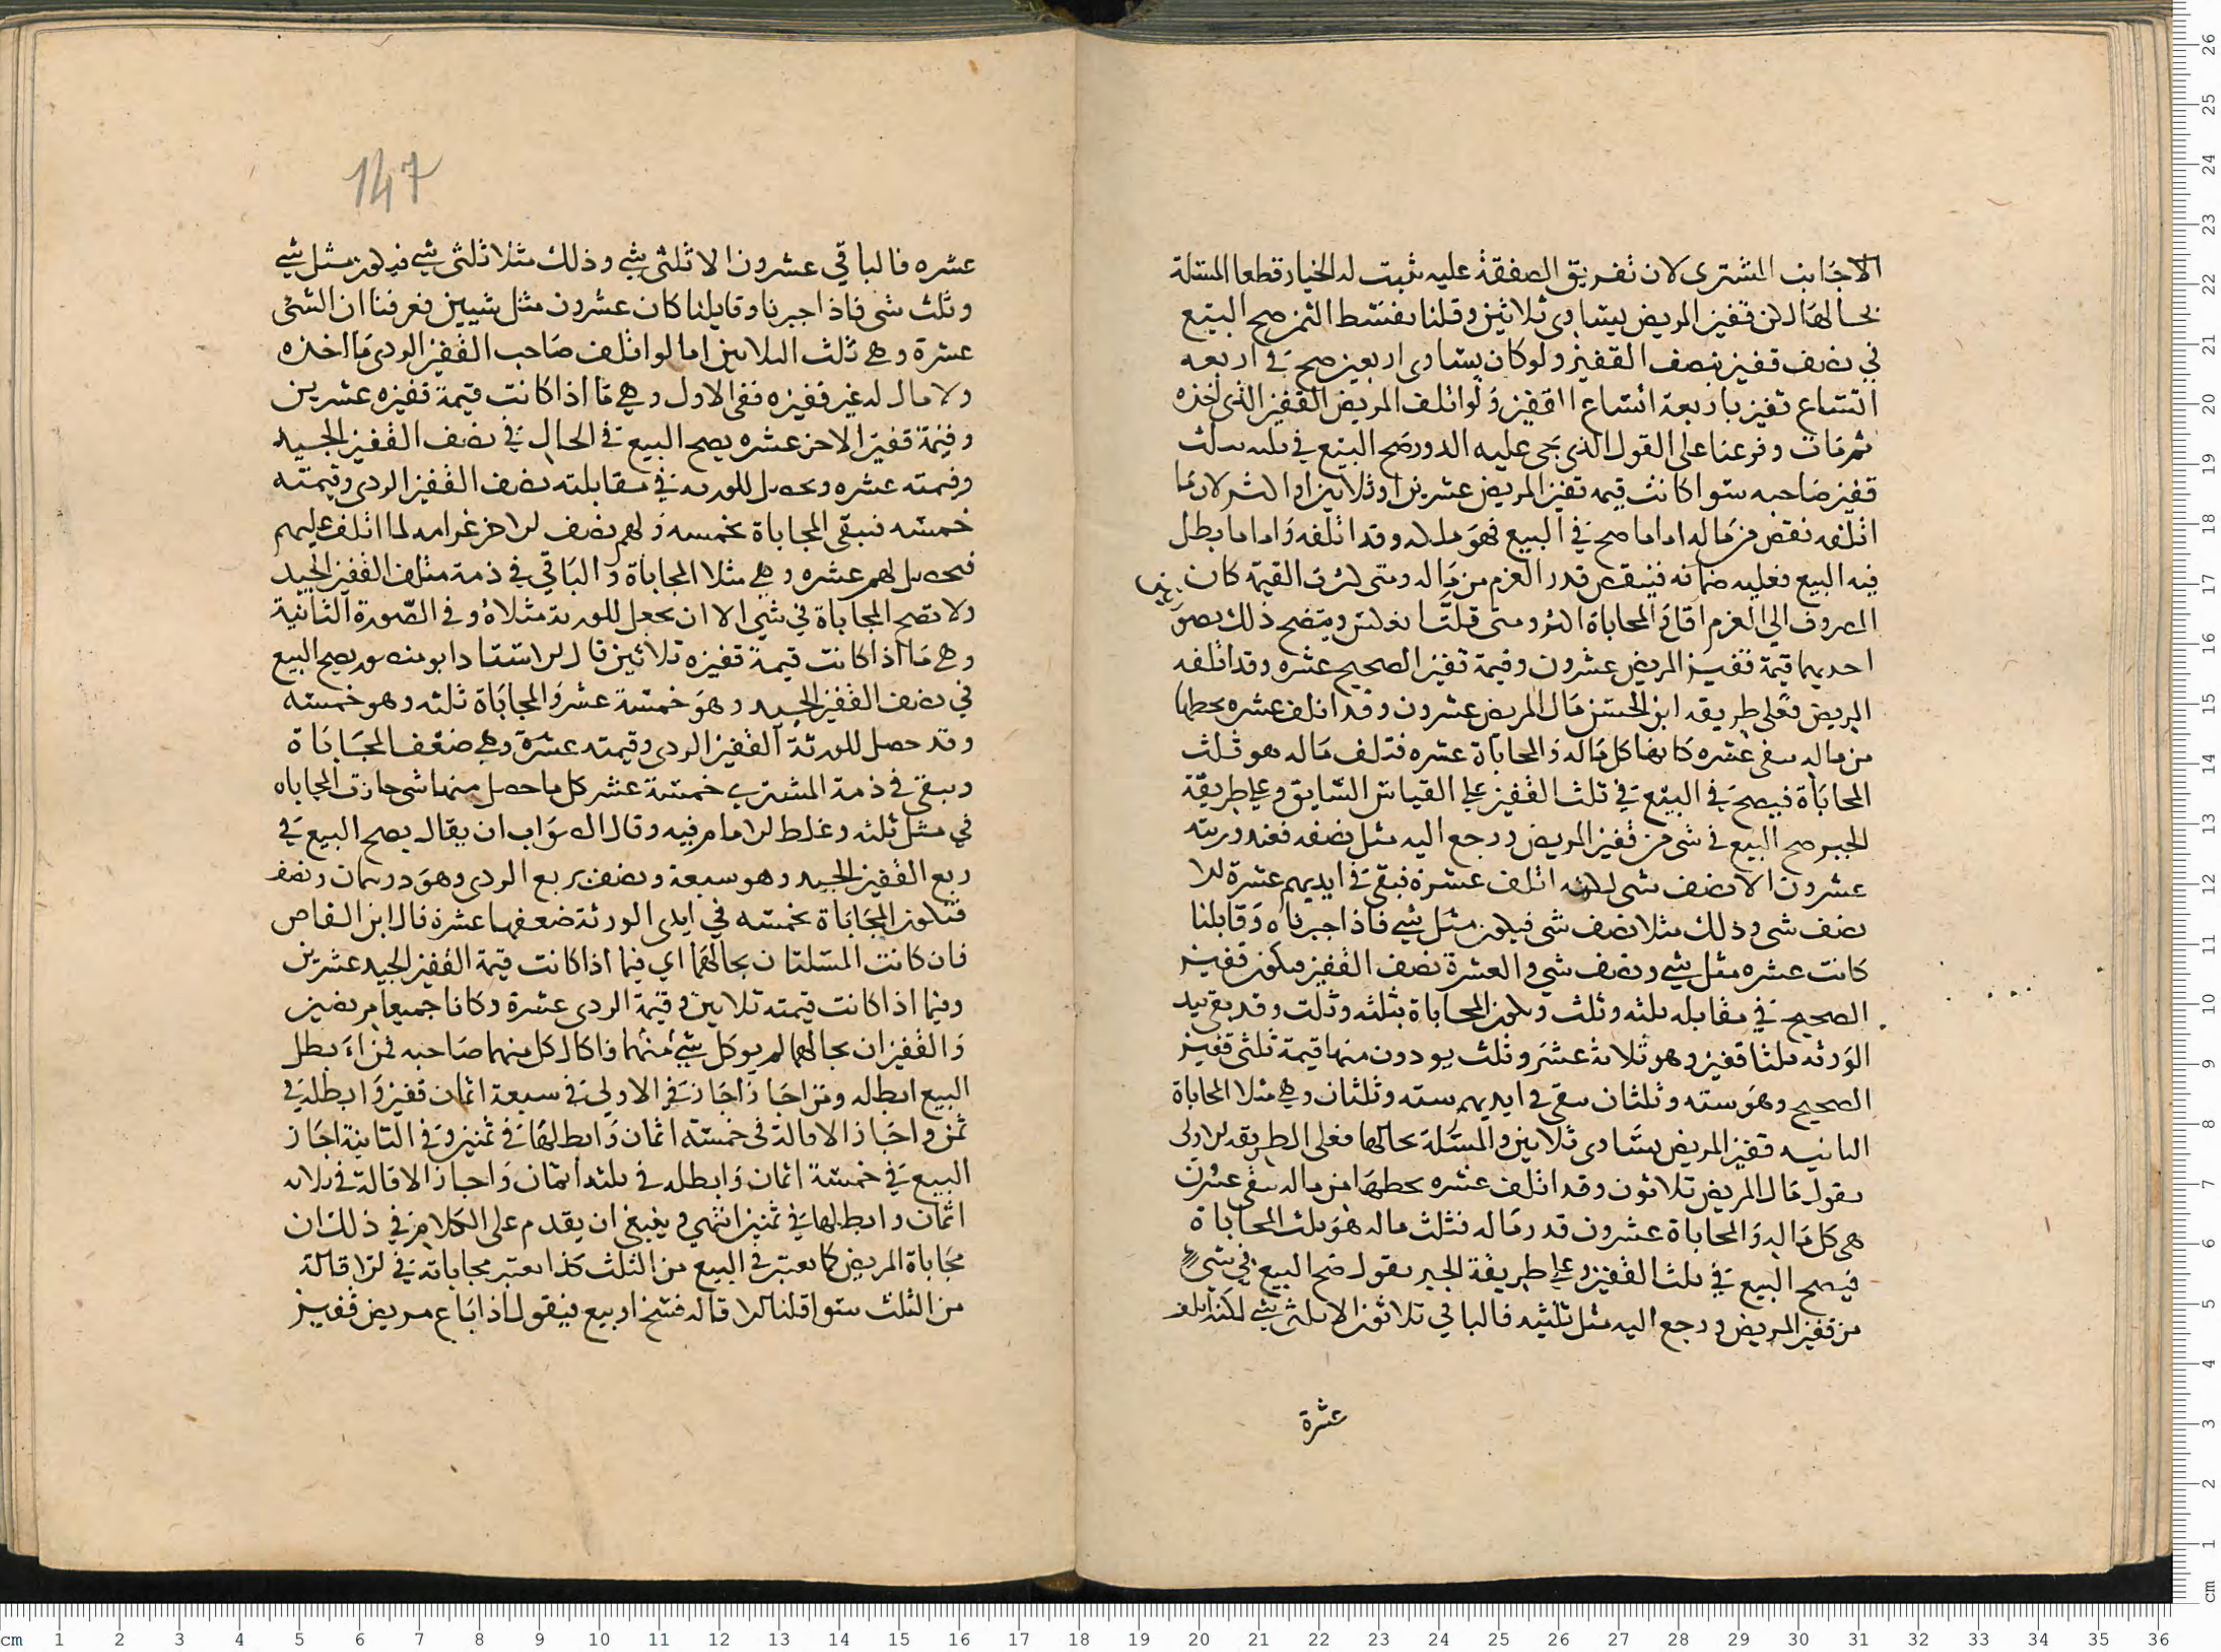 الاجانب المشترى لان تفريق الصفقة عليه تثبت له الخيار قطعا المسئلة
بحالها لكن قفيز المريض يساوى ثلاثين وقلنا بقسط الثمن صح البيع
في نصف قفيز بنصف القفيز ولو كان يساوى اربعين صح في اربعه
اتساع قفيز باربعة اتساع القفيز ولو اتلف المريض القفيز الذى اخذه
ثم مات وفرعنا على القول الذى يجى عليه الدور صح البيع في ثلثه بثلث
قفيز صاحبه سوا كانت قيمه قفيز المريض عشرين او ثلاثين او اكثر لان ما
اتلفه نقص من ماله اما ما صح في البيع فهو ملكه وقد اتلفه واما ما بطل
فيه البيع فعليه ضمانه فينقص قدر الغرم من ماله ومتى كثرت القيمة كان
المصروف الى الغرم اقل والمحاباة اكثر ومتى قلت انعكس ويتضح ذلك بصور
احديهما قيمة قفيز المريض عشرون وقيمة قفيز الصحيح عشره وقد اتلفه
المريض فعلى طريقه ابن الحسن مال المريض عشرون وقد اتلف عشره يحطها
من ماله يبقى عشره كانها كل ماله والمحاباة عشره فثلث ماله هو ثلث
المحاباة فيصح في البيع في ثلث القفيز على القياس السابق وعلى طريقة
الجبر صح البيع في شى من قفيز المريض ورجع اليه مثل نصفه فعند ورثته
عشرون الا نصف شى لكنه اتلف عشرة فبقى في ايديهم عشرة الا
نصف شى وذلك مثلا نصف شى فيكون مثل شى فاذا جبرناه وقابلنا
كانت عشره مثل شى ونصف شى والعشرة نصف القفيز فيكون قفيز
الصحيح في مقابله ثلثه وثلث ويكون المحاباة بثلثه وثلث وقد بقى بيد
الورثه ثلثا قفيز وهو ثلاثة عشر وثلث يودون منها قيمة ثلثى قفيز
الصحيح وهو سته وثلثان يبقى في ايديهم سته وثلثان وهى مثلا المحاباة
الثانيه قفيز المريض يساوى ثلاثين والمسئلة بحالها فعلى الطريقه الاولى
يقول مال المريض ثلاثون وقد اتلف عشره يحطها من ماله يبقى عشرون
هى كل ماله والمحاباة عشرون قدر ماله فثلث ماله هو ثلث المحاباة
فيصح البيع في ثلث القفيز وعلى طريقة الجبر يقول صح البيع في شى
من قفيز المريض ورجع اليه مثل ثلثيه فالباقي ثلاثون الا ثلثى شى لكنه اتلف
عشرة
147
عشره فالباقي عشرون الا ثلثى شى وذلك مثلا ثلثى شى فيكون مثل شى
وثلث شى فاذا جبرنا وقابلنا كان عشرون مثل شيين فعرفنا ان الشى
عشرة وهى ثلث الثلاثين اما لو اتلف صاحب القفيز الردى ما اخذه
ولا مال له غير قفيزه ففى الاول وهى ما اذا كانت قيمة قفيزه عشرين
وقيمة قفيز الاخر عشره يصح البيع في الحال في نصف القفيز الجيد
وقيمته عشره ويحصل للورثه في مقابلته نصف القفيز الردى وقيمته
خمسه فتبقى المحاباة بخمسه ولهم نصف الاخر غرامه لما اتلف عليهم
فيحصل لهم عشره وهى مثلا المحاباة والباقي في ذمة متلف القفيز الجيد
ولا تصح المحاباة في شى الا ان يجعل للورثة مثلاه وفي الصورة الثانية
وهى ما اذا كانت قيمة قفيزه ثلاثين قال الاستاد ابو منصور يصح البيع
في نصف القفيز الجيد وهو خمسة عشر والمحاباة ثلثه وهو خمسه
وقد حصل للورثة القفيز الردى وقيمته عشرة وهى ضعف المحاباة
ويبقى في ذمة المشترى خمسة عشر كل ما حصل منها شى جازت المحاباه
في مثل ثلثه وغلط الامام فيه وقال الصواب ان يقال يصح البيع في
ربع القفيز الجيد وهو سبعة ونصف بربع الردى وهو درهمان ونصف
فتكون المحاباة بخمسه في ايدى الورثة ضعفها عشرة قال ابن القاص
فان كانت المسئلتان بحالهما اي فيما اذا كانت قيمة القفيز الجيد عشرين
وفيما اذا كانت قيمته ثلاثين وقيمة الردى عشرة وكانا جميعا مريضين
والقفيزان بحالهما لم يوكل شى منهما فاكال كل منهما صاحبه فمن راى بطل
البيع ابطله ومن اجاز اجاز في الاولى في سبعة اثمان قفيز وابطله في
ثمن واجاز الاقالة في خمسة اثمان وابطلها في ثمنين وفي الثانية اجاز
البيع في خمسة اثمان وابطله في ثلثه اثمان واجاز الاقالة في ثلاثه
اثمان وابطلها في ثمنين انتهى وينبغى ان يقدم على الكلام في ذلك ان
محاباة المريض كما تعتبر في البيع من الثلث كذا تعتبر محاباته في الاقالة
من الثلث سوا قلنا الاقاله فسخ او بيع فيقول اذا باع مريض قفيز